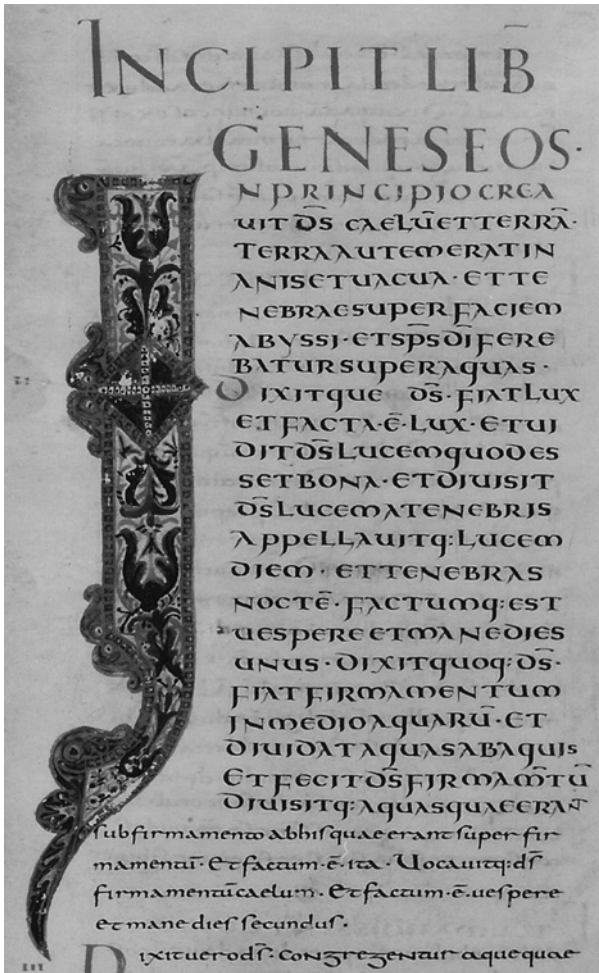 INCIPIT LIB̄
GENESEOS·
N PRINCIPIO CREA
UIT D̄S CAELŪ ET TERRĀ·
TERRA AUTEM ERAT IN
ANIS ET UACUA · ET TE
NEBRAE SUPER FACIEM
ABYSSI · ET SP̄S D̄I FERE
BATUR SUPER AQUAS ·
DIXITQUE D̄S · FIAT LUX
ET FACTA · Ē · LUX · ET UI
DIT D̄S LUCEM QUOD ES
SET BONA · ET DIUISIT
D̄S LUCEM A TENEBRIS
APPELLAUITQ: LUCEM
DIEM · ET TENEBRAS
NOCTĒ · FACTUMQ: EST
UESPERE ET MANE DIES
UNUS · DIXIT QUOQ: D̄S·
FIAT FIRMAMENTUM
IN MEDIO AQUARŪ · ET
DIUIDAT AQUAS AB AQUIS
ET FECIT D̄S FIRMAM̄TŪ
DIUISITQ: AQUAS QUAE ERANT
sub firmamento ab his quae erant super fir
mamentū · Et factum · ē · ita · Uocauitq: d̄s
firmamentū caelum · Et factum · ē · uespere
et mane dies secundus ·
Dixit uero d̄s · Congregentur aque quae
III